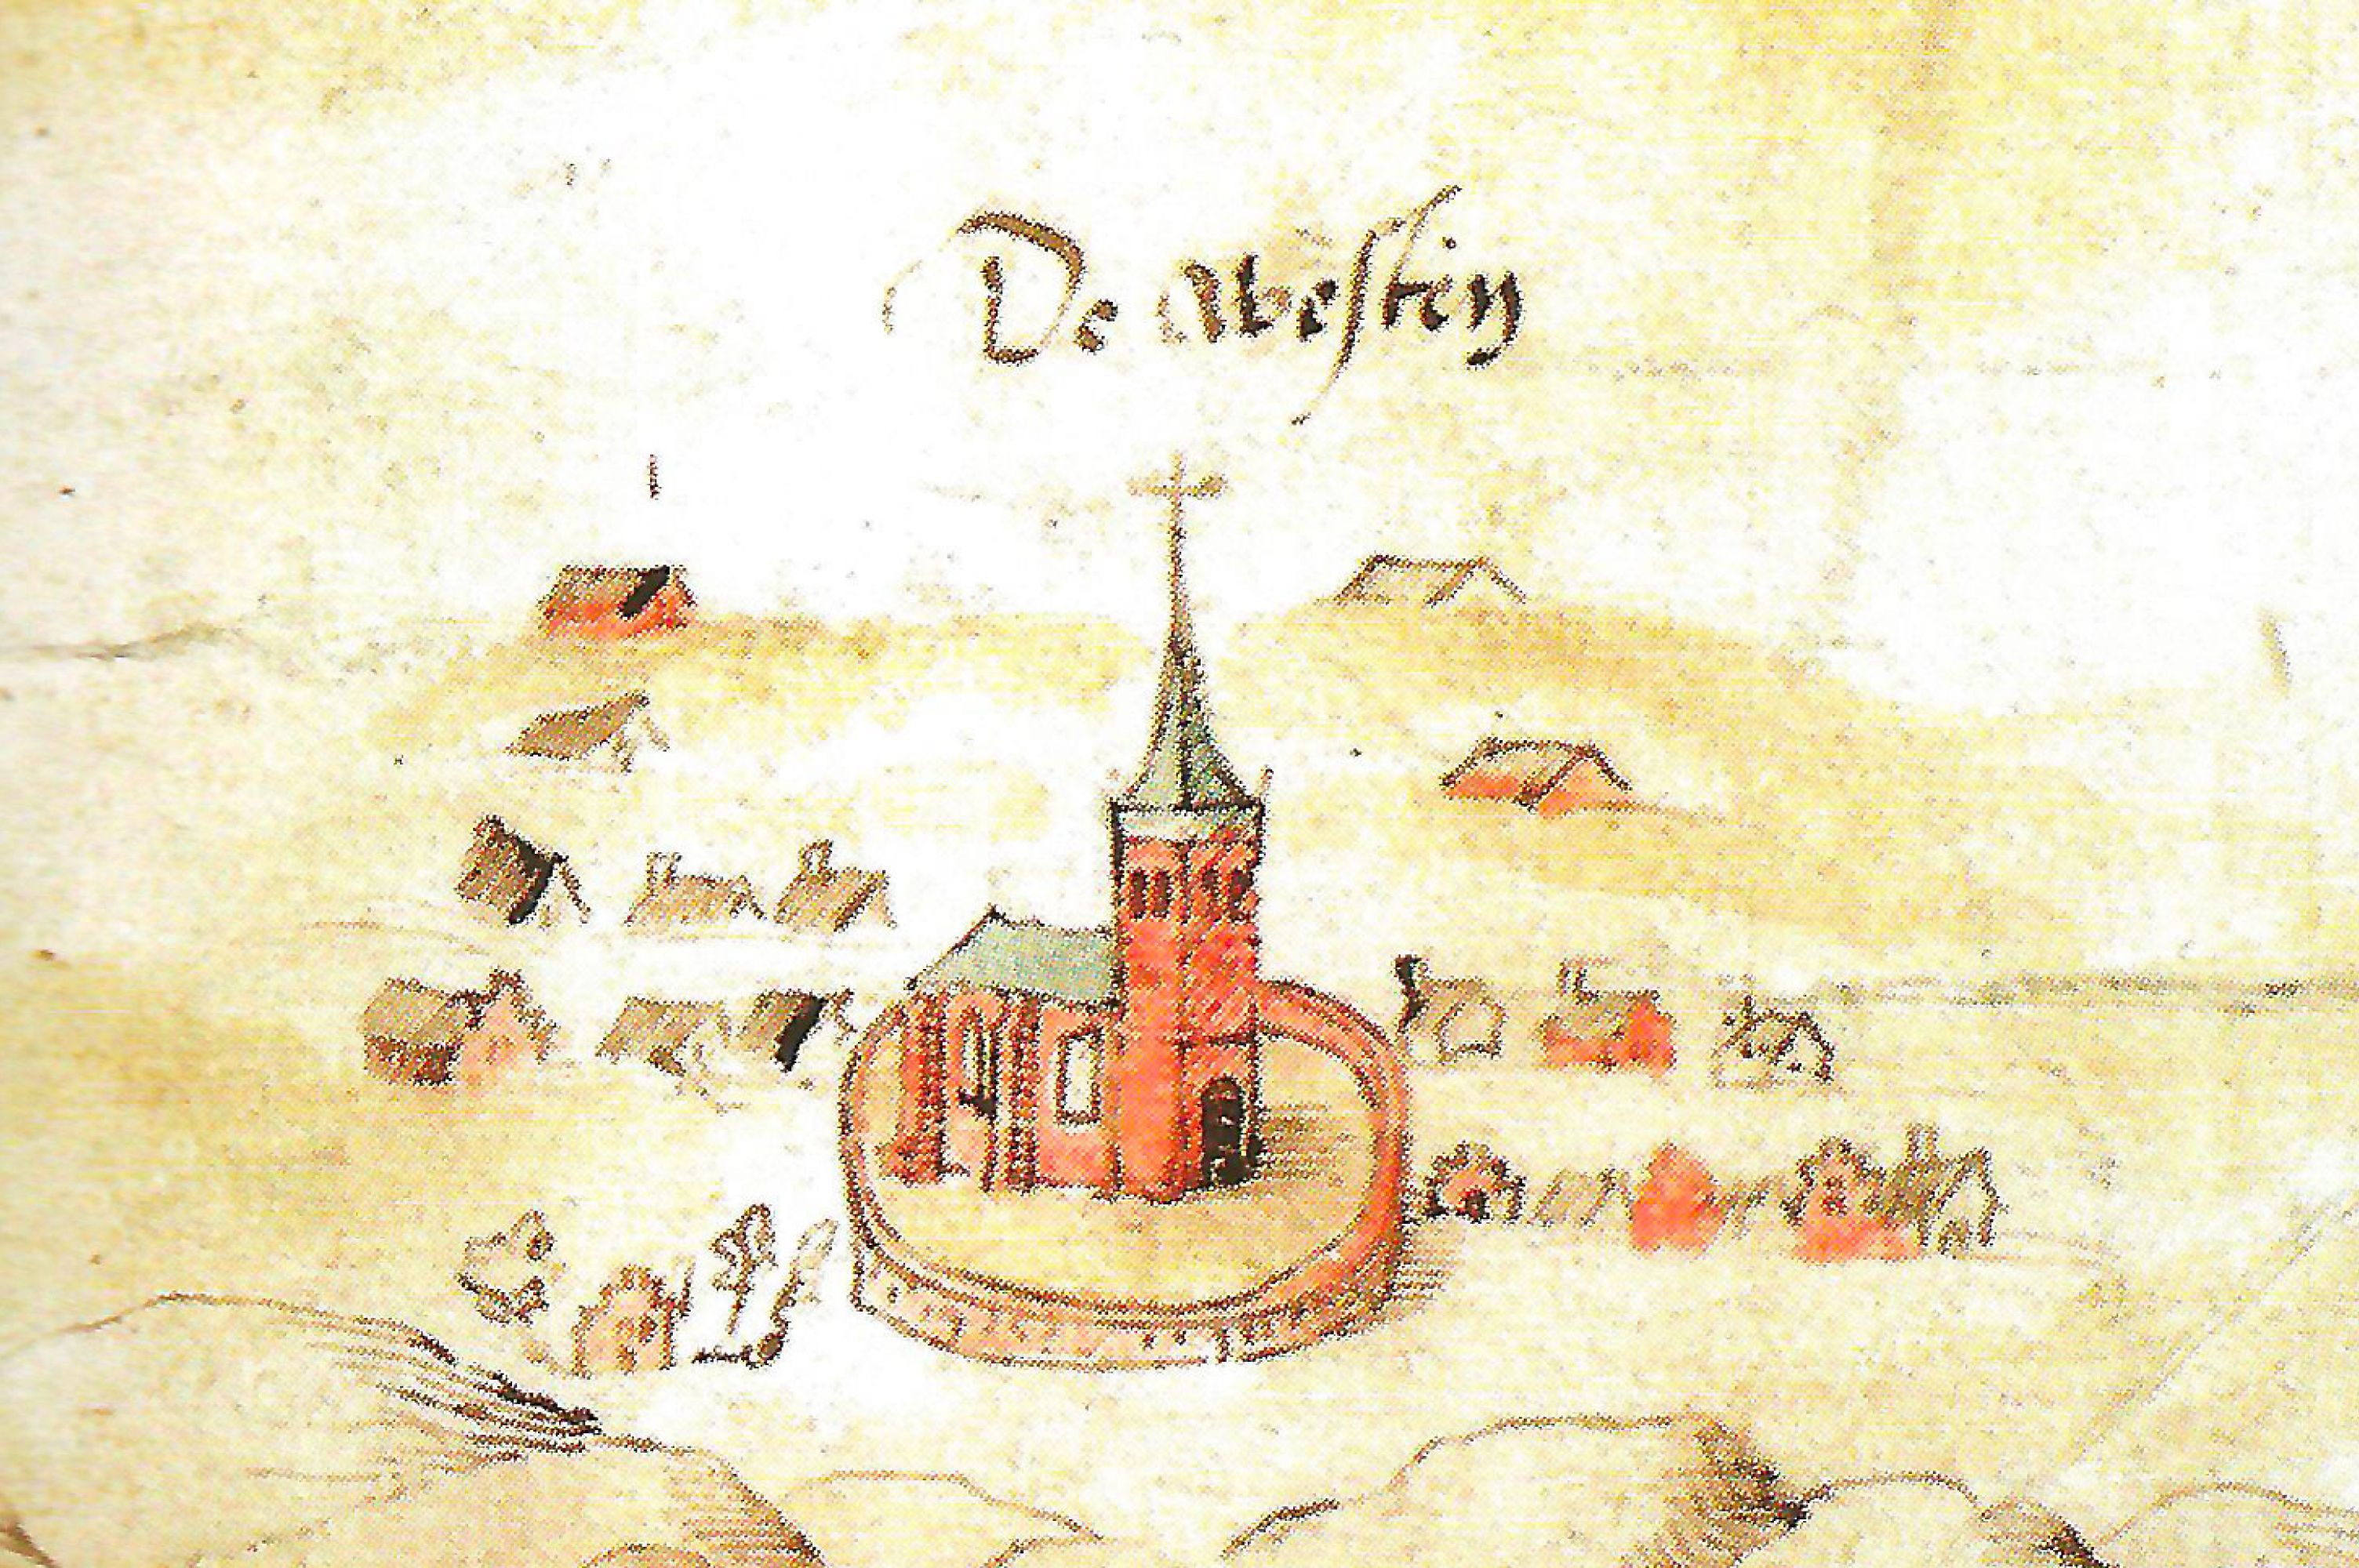 De Westin